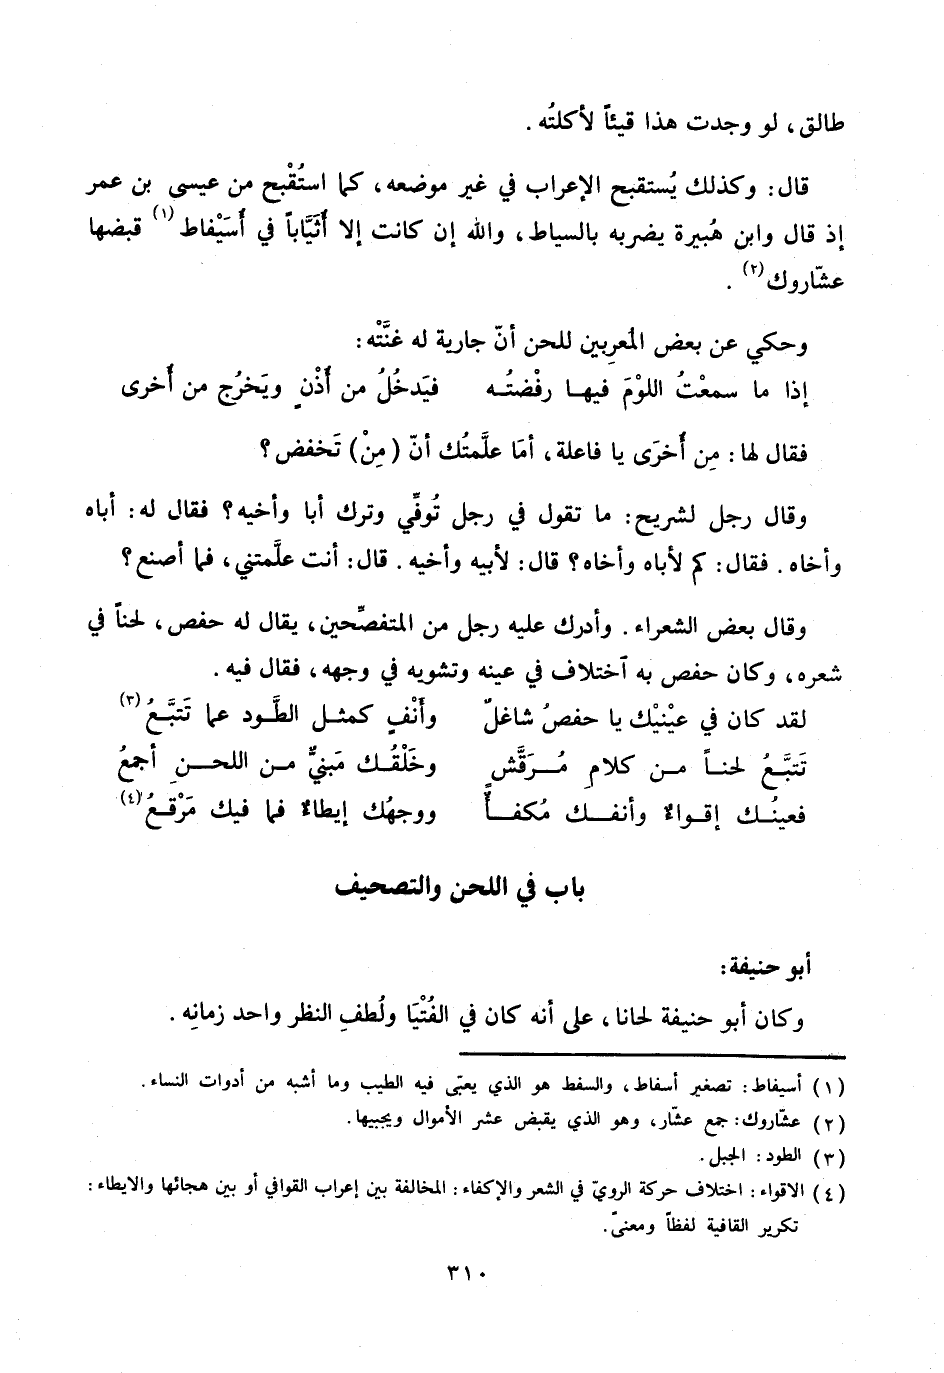 طالق، لو وجدت هذا قيئاً لأكلتُه .
قال: وكذلك يُستقبح الإعراب في غير موضعه، كما استُقْبح من عيسى بن عمر
إذ قال وابن هُبيرة يضربه بالسياط، والله إن كانت إلا أُثَيَّاباً في أُسَيْفاط(١) قبضها
عشّاروك(٢) .
وحكي عن بعض المعربِين للحن أنّ جارية له غنَّتْه:
إذا ما سمعْتُ اللوْمَ فيهـا رفْضتُـه    فيَدخُلُ من أُذْنٍ ويَخرُج من أُخرى
فقال لها: مِن أُخرَى يا فاعلة، أمَا علَّمتُك أنّ (مِنْ) تَخفض؟
وقال رجل لشريح: ما تقول في رجل تُوفّي وترك أبا وأخيه؟ فقال له: أباه
وأخاه. فقال: كم لأباه وأخاه؟ قال: لأبيه وأخيه. قال: أنت علّمتني، فما أصنع؟
وقال بعض الشعراء. وأدرك عليه رجل من المتفصّحين، يقال له حفص، لحناً في
شعره، وكان حفص به اختلاف في عينه وتشويه في وجهه، فقال فيه.
لقد كان في عيْنيْك يا حفصُ شاغلٌ    وأنْفٍ كمثـل الطَّـود عما تَتبَّعُ(٣)
تَتبَّـعُ لحنـاً مـن كلامِ مُـرَقَّشٍ    وخَلْقُـك مَبنيٌّ مـن اللحـنِ أجمعُ
فعينُـك إقـواءٌ وأنفـك مُكفـأٌ    ووجهُك إيطاءٌ فما فيك مَرْقـعُ(٤)
باب في اللحن والتصحيف
أبو حنيفة:
وكان أبو حنيفة لحانا، على أنه كان في الفُتْيَا ولُطفِ النظر واحد زمانِه.
(١) أسيفاط: تصغير أسفاط، والسفط هو الذي يعبّى فيه الطيب وما أشبه من أدوات النساء.
(٢) عشّاروك: جمع عشّار، وهو الذي يقبض عشر الأموال ويجبيها.
(٣) الطود: الجبل.
(٤) الاقواء: اختلاف حركة الرويّ في الشعر والإكفاء: المخالفة بين إعراب القوافي أو بين هجائها والايطاء:
تكرير القافية لفظاً ومعنىً.
٣١٠